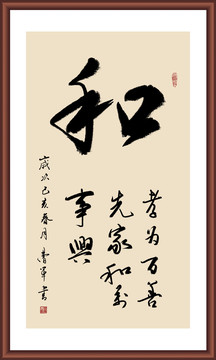 和
孝为百善
先家和万
事興
歲次己亥春月 书